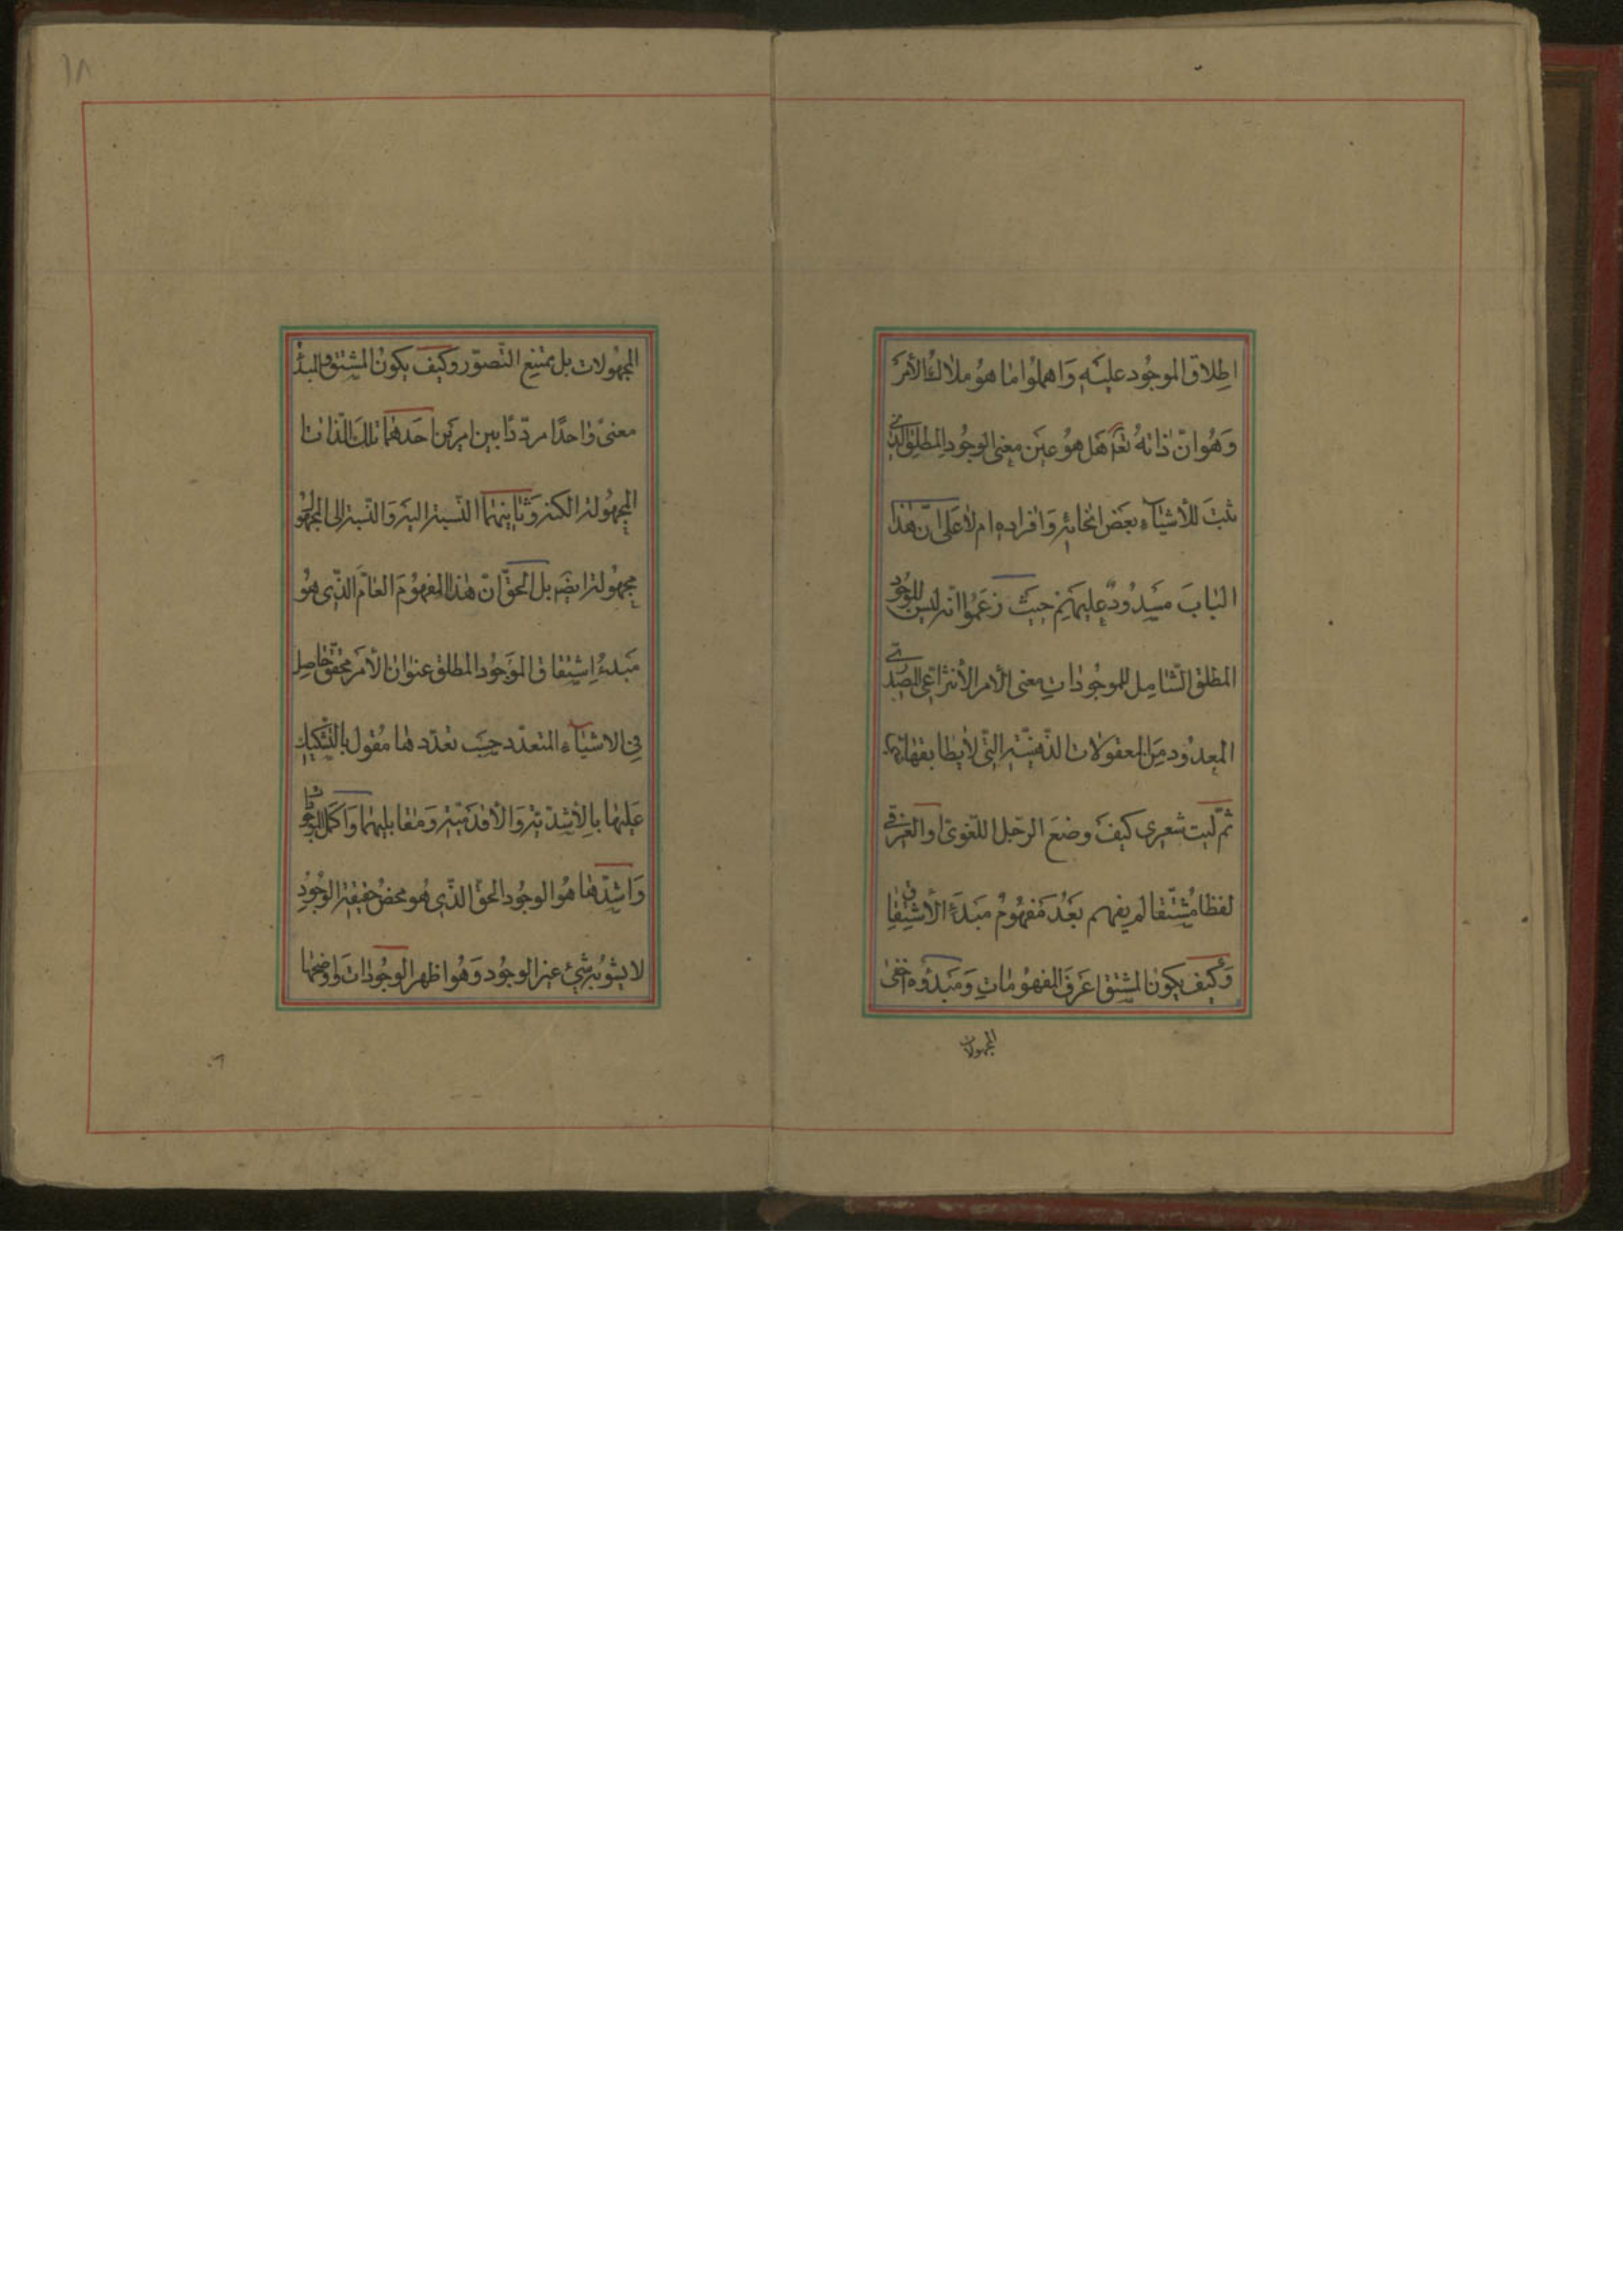 اطلاق الموجود عليه واهملوا ما هو ملاك الأمر
وهو ان ذاته تعا هل هو عين معنى الوجود المطلق الذي
ثبت للأشياء بعض انحائه وافراده ام لا على ان هذا
الباب مسدود عليهم حيث زعموا انه ليس للوجود
المطلق الشامل للموجودات معنى الا الامر الأنتزاعي المصدري
المعدود من المعقولات الذهنية التي لا يطابقها
ثم ليت شعري كيف وضع الرجل اللغوي او العرفي
لفظا مشتقا لم يفهم بعد مفهوم مبدء الأشتقاق
وكيف يكون المشتق اعرف المفهومات ومبدؤه اخفى
المجهولات
١٨
المجهولات بل ممتنع التصور وكيف يكون المشتق والمبدأ
معنى واحدًا مرددًا بين امرين احدهما تلك الذات
المجهولة الكنه وثانيهما النسبة اليه والنسبة الى المجهول
مجهولة ايضه بل الحق ان هذا المفهوم العام الذي هو
مبدء اشتقاق الموجود المطلق عنوان لأمر محقق حاصل
في الاشياء المتعدد حسب تعددها مقول بالتشكيك
عليها بالأشدية والأقدمية ومقابليهما واكمل الوجودات
واشدها هو الوجود الحق الذي هو محض حقيقة الوجود
لا يشوبه شيء غير الوجود وهو اظهر الوجودات واوضحها